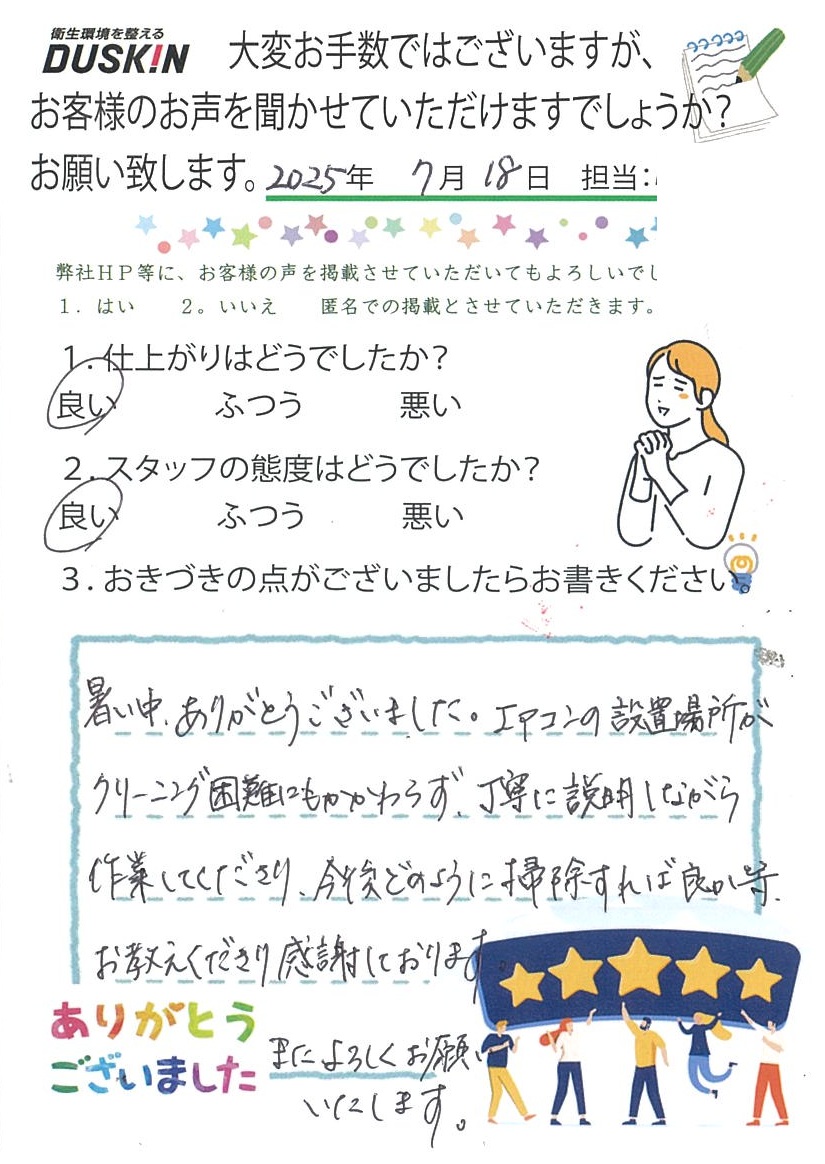 衛生環境を整える
DUSK!N 大変お手数ではございますが、
お客様のお声を聞かせていただけますでしょうか?
お願い致します。2025年 7月 18日 担当:
弊社HP等に、お客様の声を掲載させていただいてもよろしいでし
1. はい 2。いいえ 匿名での掲載とさせていただきます。
1. 仕上がりはどうでしたか?
良い ふつう 悪い
2. スタッフの態度はどうでしたか?
良い ふつう 悪い
3. おきづきの点がございましたらお書きください。
暑い中、ありがとうございました。エアコンの設置場所が
クリーニング困難にもかかわらず、丁寧に説明しながら
作業してくださり、今後どのように掃除すれば良いか等、
お教えくださり感謝しております。
ありがとう
ございました
またよろしくお願い
いたします。